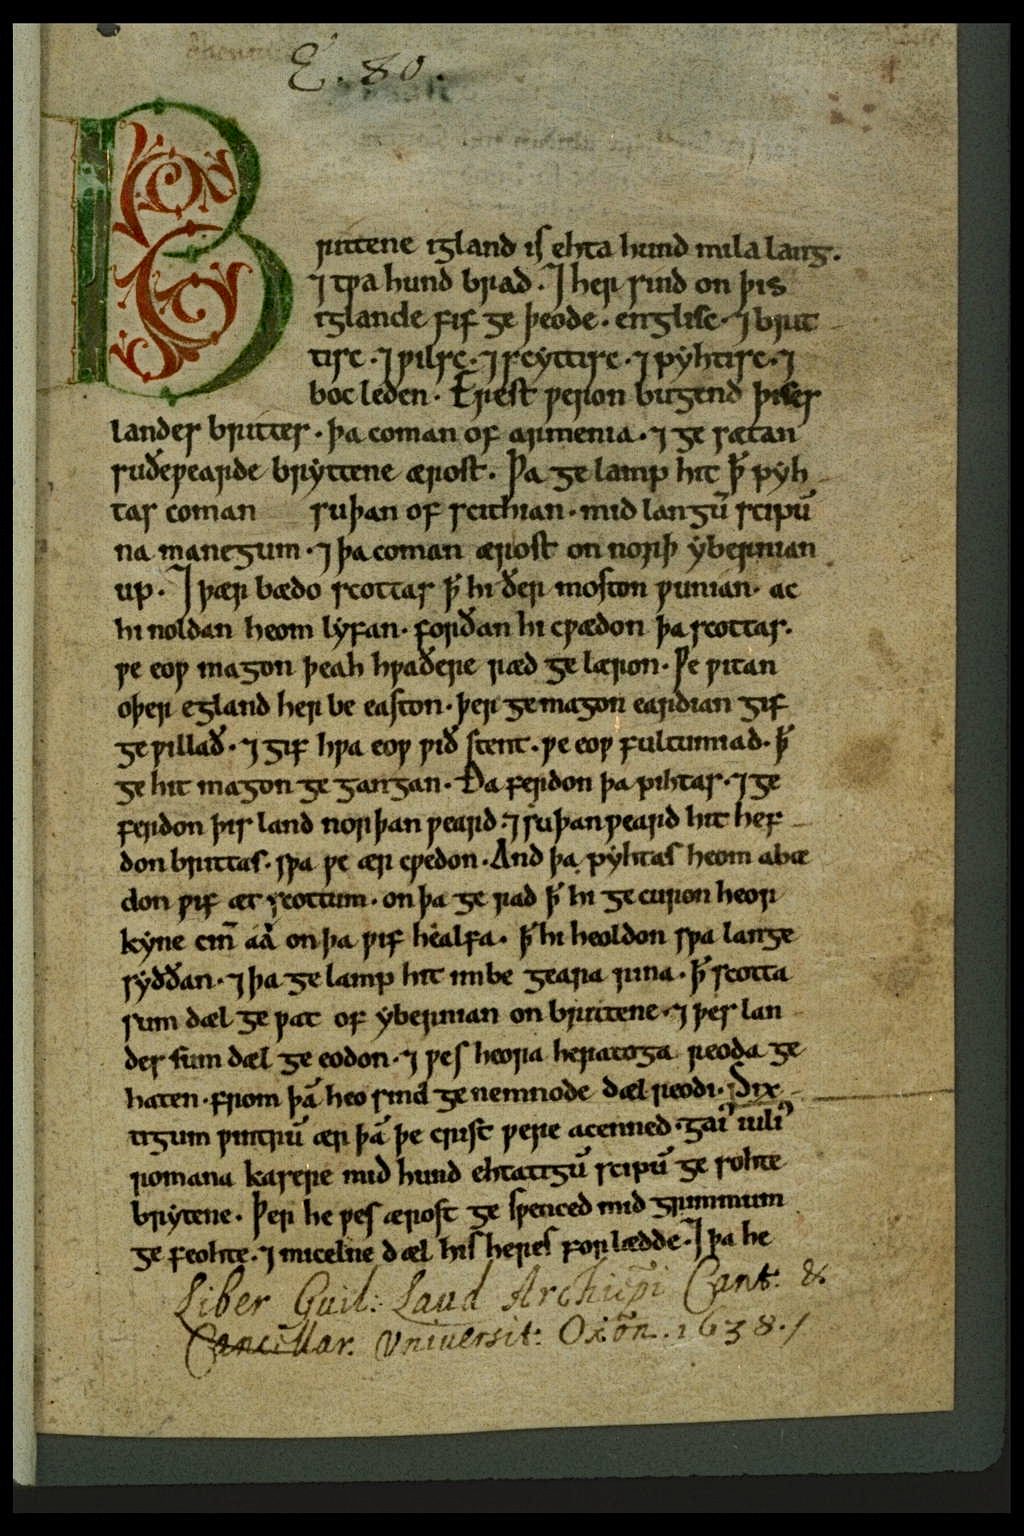 E. 80.
Brittene igland is ehta hund mila lang.
⁊ tƿa hund brad. ⁊ her sind on þis
iglande fif ge þeode. englisc. ⁊ brit
tisc. ⁊ ƿilsc. ⁊ scyttisc. ⁊ pyhtisc. ⁊
boc leden. Erest ƿeron bugend þises
landes brittes. þa coman of armenia. ⁊ ge sætan
suðeƿearde bryttene ærost. Þa ge lamp hit ꝥ pyh
tas coman suþan of scithian. mid langū scipū
na manegum. ⁊ þa coman ærost on norþ ybernian
up. ⁊ þær bædo scottas ꝥ hi ðer moston ƿunian. ac
hi noldan heom lyfan. forðan hi cƿædon þa scottas.
ƿe eoƿ magon þeah hƿaðere ræd ge læron. Ƿe ƿitan
oþer egland her be easton. þer ge magon eardian gif
ge ƿillað. ⁊ gif hƿa eoƿ ƿið stent. ƿe eoƿ fultumiad. ꝥ
ge hit magon ge gangan. Ða ferdon þa pihtas. ⁊ ge
ferdon þis land norþan ƿeard. ⁊ suþan ƿeard hit hef
don brittas. sƿa ƿe ær cƿedon. And þa pyhtas heom abæ
don ƿif æt scottum. on þa ge rad ꝥ hi ge curon heor
kyne cin̄ aá on þa ƿif healfa. ꝥ hi heoldon sƿa lange
syððan. ⁊ þa ge lamp hit imbe geara rina. ꝥ scotta
sum dæl ge ƿat of ybernian on brittene. ⁊ þes lan
des sum dæl ge eodon. ⁊ ƿes heora heratoga reoda ge
haten. from þā heo sind ge nemnode dæl reodi. Six
tigum ƿintrū ær þā þe crist ƿere acenned. gai᷒ iuli᷒
romana kasere mid hund ehtatigū scipū ge sohte
brytene. Þer he ƿes ærost ge sƿenced mid grimmum
ge feohte. ⁊ micelne dæl his heres forlædde. ⁊ þa he
Liber Guil: Laud Archiēpi Cant: &
Cancellar. Vniuersit: Oxōn. 1638./